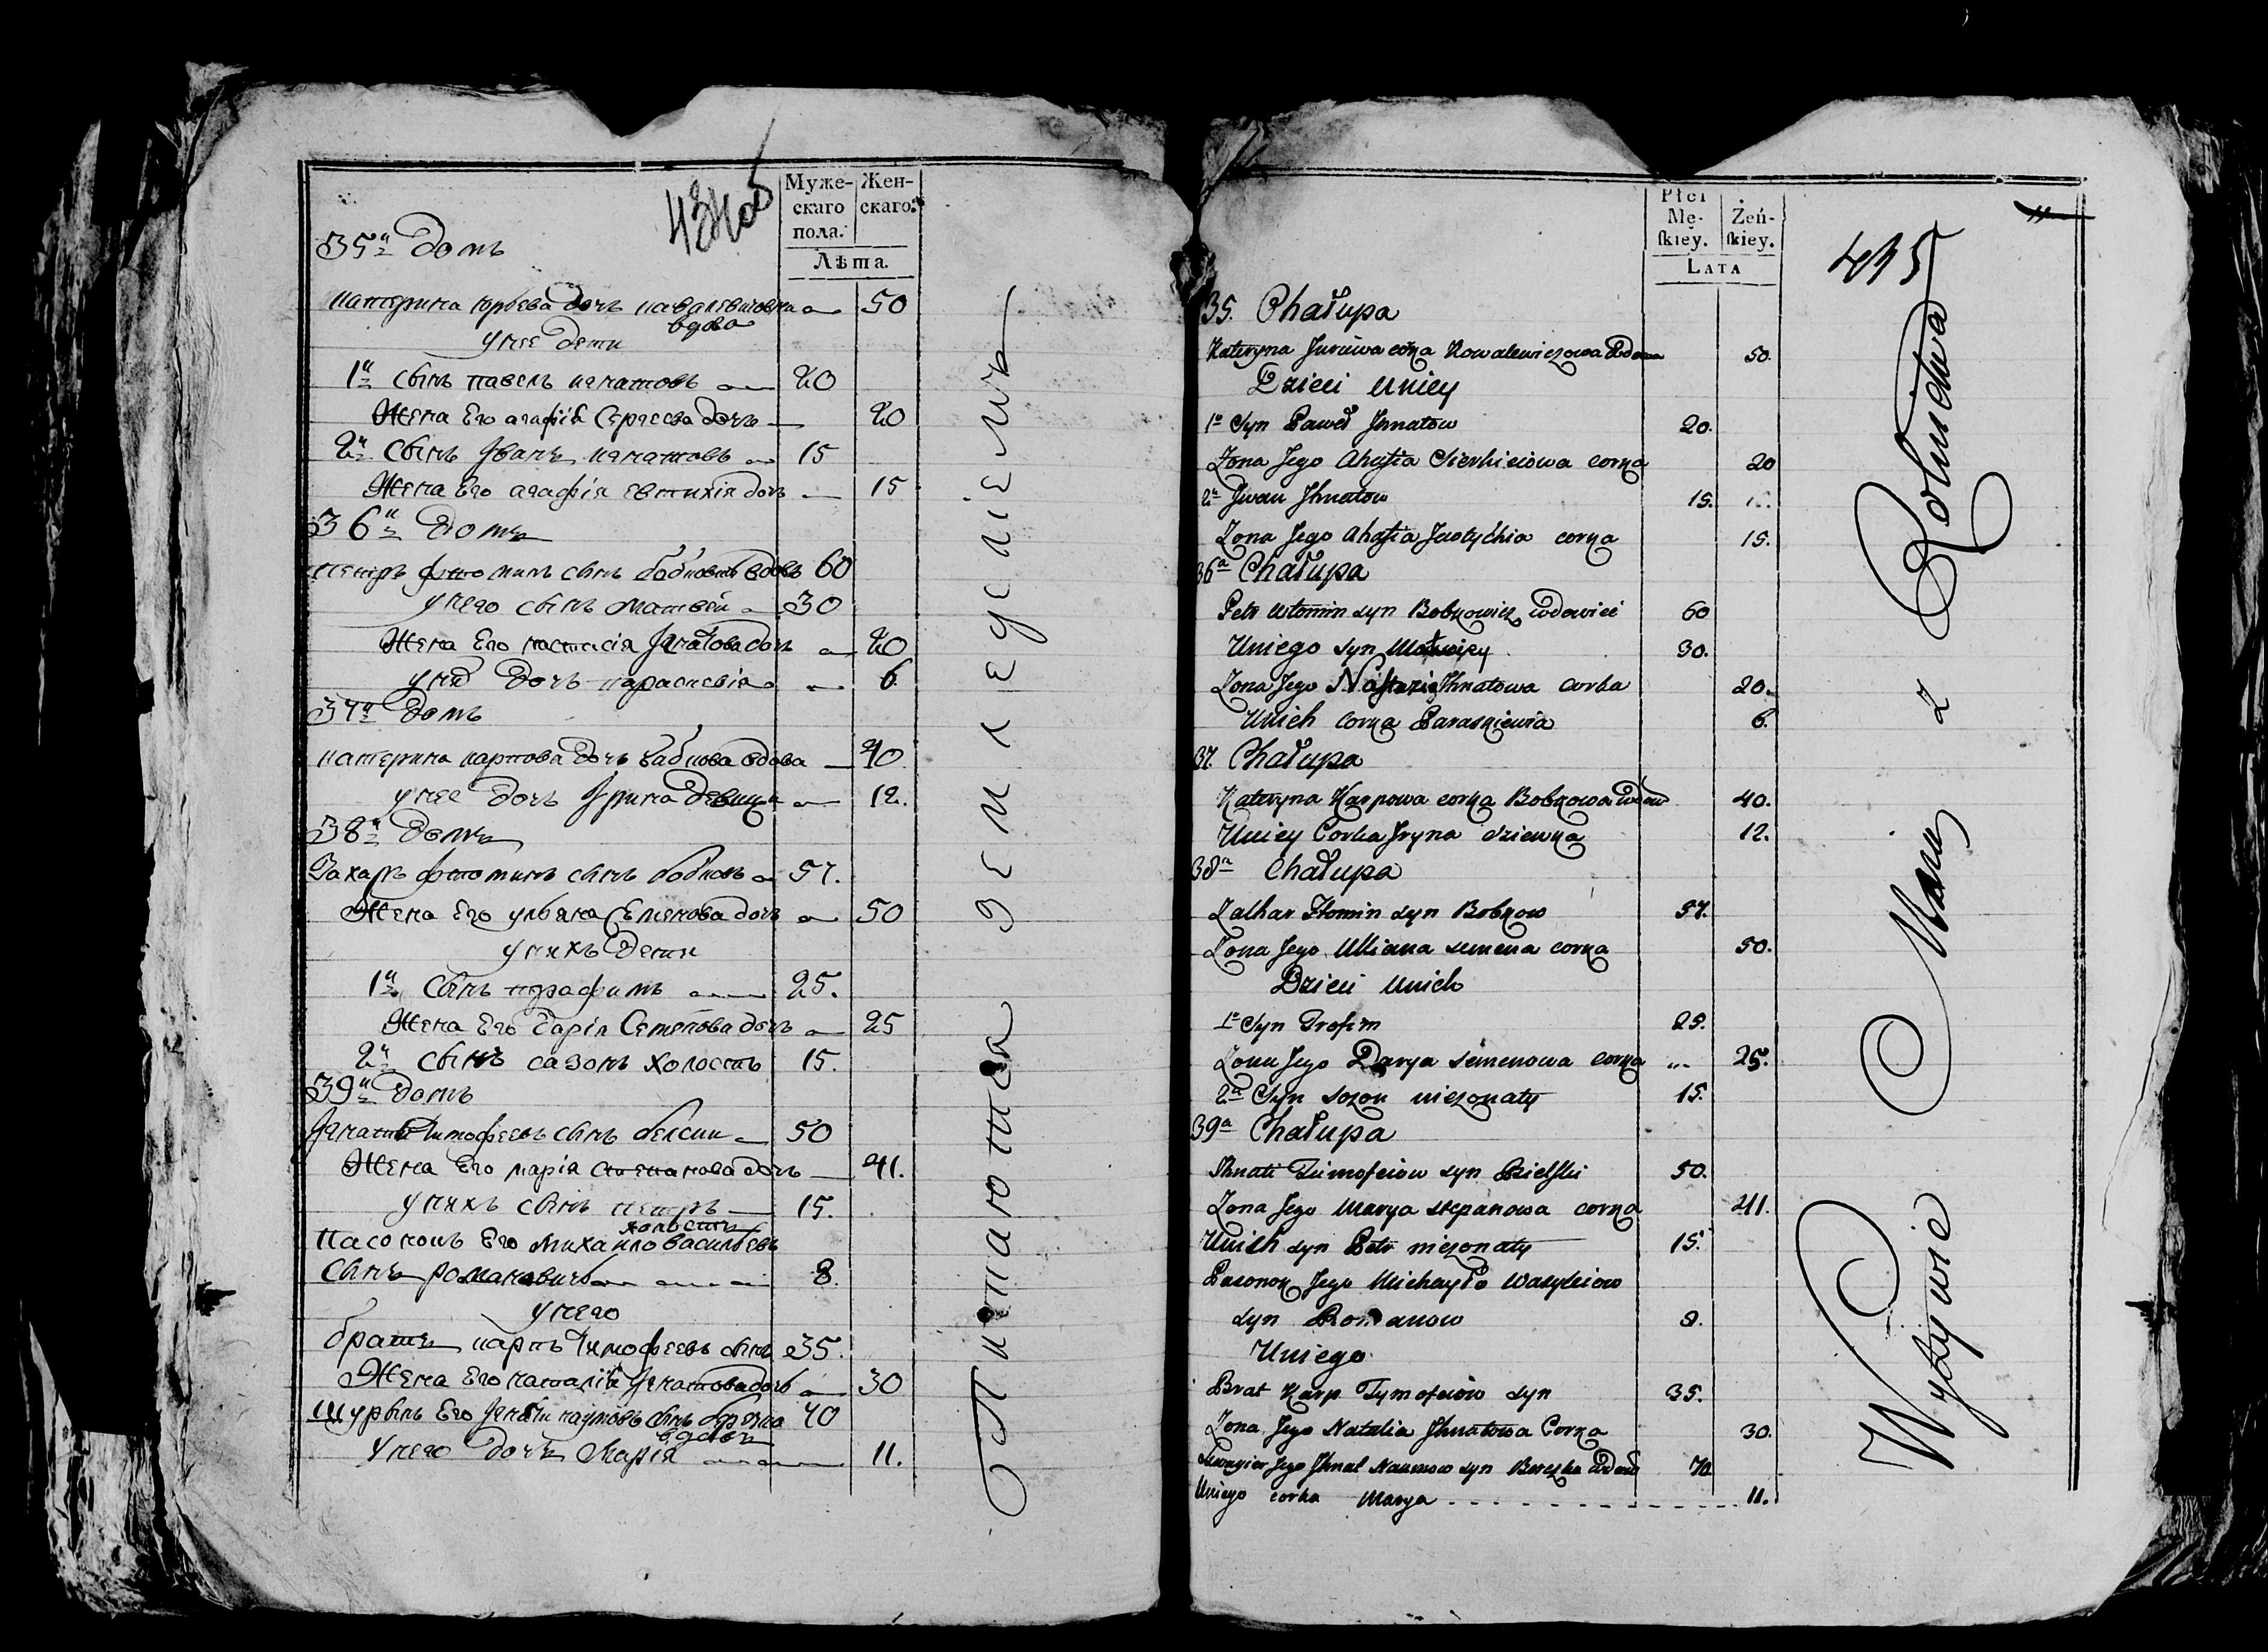 Муже-
скаго
пола.
Жен-
скаго.
Лѣта.
35й домъ
катерина юрьева дочь ковалевичовна 50
вдова
у нее дети
1й сынъ павелъ игнатовъ 20
Жена Его агафія Сергеева дочь 20
2й сынъ Иванъ игнатовъ 15
Жена Его агафія евтихія дочь 15
36й домъ
петръ фтоминъ сынъ бобковичь вдовъ 60
у него сынъ матвей 30
Жена Его настасія Игнатова дочь 20
у них дочь параскевія 6
37й домъ
катерина карпова дочь бабкова вдова 40
у нее дочь Ирина девица 12.
38й домъ
Захаръ фтоминъ сынъ бобковъ 57.
Жена Его ульяна Семенова дочь 50
у нихъ дети
1й сынъ трафимъ 25.
Жена Его дарія Семенова дочь 25
2й сынъ сазонъ холостъ 15.
39й домъ
Игнатъ Тимофеевъ сынъ белски 50
Жена Его марія степанова дочь 41.
у нихъ сынъ петръ 15.
холостъ
Пасонокъ Его михайло васильевъ
сынъ романовичь 8.
у него
братъ карпъ Тимофеевъ сынъ 35.
Жена Его наталія Игнатова дочь 30
шурынъ Его Игнатъ наумовъ сынъ 40
вдовъ
у него дочь Марія 11.
Питаются земледѣліемъ
Płci
Mę-
skiey.
Żeń-
skiey.
LATA
415
35. Chałupa
Kateryna Juriewa corka Kowalewiczowa Wdowa 50.
Dzieci Uniey
1e Syn Paweł Ihnatow 20.
Zona Jego Ahafia Sierhieiowa corka 20
2e Jwan Ihnatow 15.
Zona Jego Ahafia Jewtychia corka 15.
36a Chałupa
Petr Wtomin syn Bobkowicz wdowiec 60
Uniego syn Matwiey 30.
Zona Jego Nastazia Ihnatowa Corka 20.
Unich corka Paraskiewia 6.
37. Chałupa
Kateryna Karpowa corka Bobkowa Wdow 40.
Uniey Corka Jryna dziewka 12.
38a Chałupa
Zachar Ftomin syn Bobkow 57.
Zona Jego Uliana semena corka 50.
Dzieci Unich
1e Syn Trofim 25.
Zona Jego Darya Semenowa corka 25.
2a Syn Sozon niezonaty 15.
39a Chałupa
Ihnati Timofeiow syn Bielski 50.
Zona Jego Marya stepanowa corka 41.
Unich syn Petr niezonaty 15.
Pasonok Jego Michayło Wasyliow
syn Romanow 8.
Uniego
Brat Karp Tymofeiow syn 35.
Zona Jego Natalia Ihnatowa Corka 30.
Szwagier Jego Ihnat Naumow syn Berezka wdow 40
Uniego corka Marya 11.
Wyżywie Maią z Rolnictwa